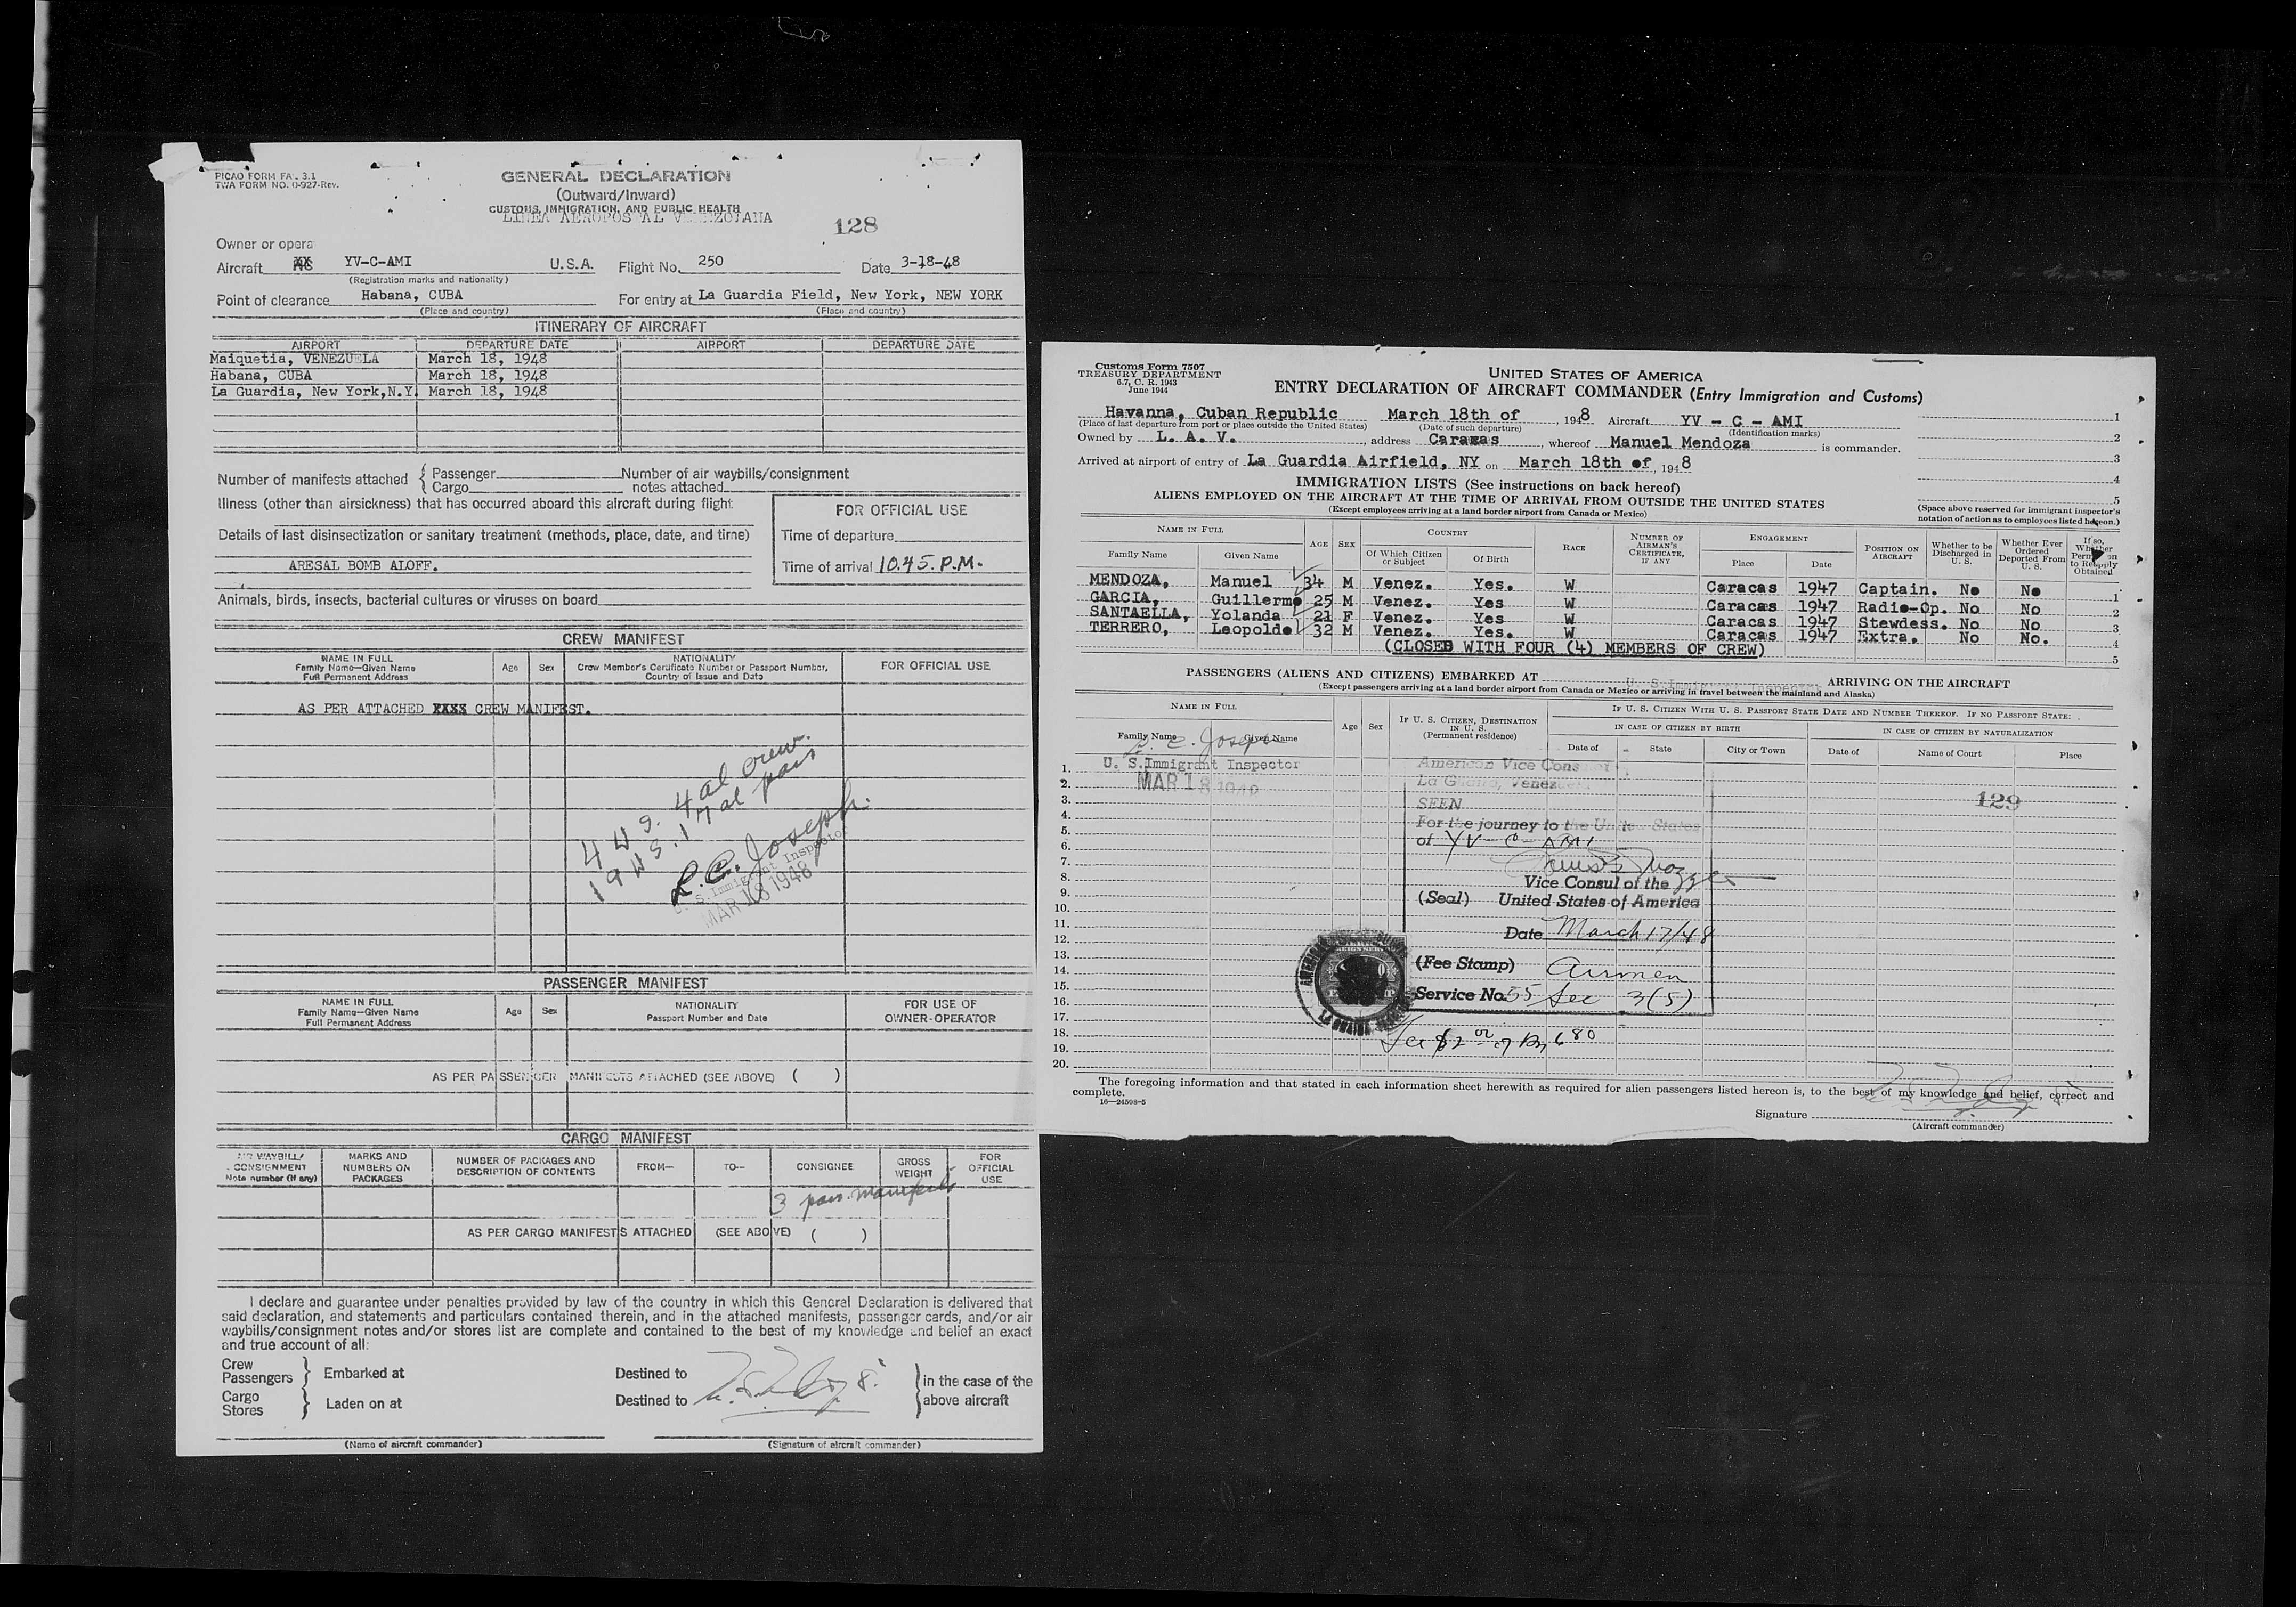 PICAO FORM FAL 3.1
TWA FORM NO. 0-927-Rev.
GENERAL DECLARATION
(Outward/Inward)
CUSTOMS, IMMIGRATION, AND PUBLIC HEALTH
LINEA AEROPOSTAL VENEZOLANA
128
Owner or opera
Aircraft YV-C-AMI U.S.A. Flight No. 250 Date 3-18-48
(Registration marks and nationality)
Point of clearance Habana, CUBA For entry at La Guardia Field, New York, NEW YORK
(Place and country) (Place and country)
ITINERARY OF AIRCRAFT
AIRPORT DEPARTURE DATE AIRPORT DEPARTURE DATE
Maiquetia, VENEZUELA March 18, 1948
Habana, CUBA March 18, 1948
La Guardia, New York,N.Y. March 18, 1948
Number of manifests attached { Passenger Number of air waybills/consignment
Cargo notes attached
Illness (other than airsickness) that has occurred aboard this aircraft during flight:
FOR OFFICIAL USE
Details of last disinsectization or sanitary treatment (methods, place, date, and time)
Time of departure
ARESAL BOMB ALOFF.
Time of arrival 10.45. P.M.
Animals, birds, insects, bacterial cultures or viruses on board
CREW MANIFEST
NAME IN FULL
Family Name—Given Name
Full Permanent Address
Age Sex
NATIONALITY
Crew Member's Certificate Number or Passport Number,
Country of Issue and Date
FOR OFFICIAL USE
AS PER ATTACHED XXXX CREW MANIFEST.
4 W S. 4 al crew.
19 W S. 17 al pass
R.C. Joseph.
U. S. Immigrant Inspector
MAR 18 1948
PASSENGER MANIFEST
NAME IN FULL
Family Name—Given Name
Full Permanent Address
Age Sex
NATIONALITY
Passport Number and Date
FOR USE OF
OWNER-OPERATOR
AS PER PASSENGER MANIFESTS ATTACHED (SEE ABOVE) ( )
CARGO MANIFEST
AIR WAYBILL/
CONSIGNMENT
Note number (if any)
MARKS AND
NUMBERS ON
PACKAGES
NUMBER OF PACKAGES AND
DESCRIPTION OF CONTENTS
FROM— TO— CONSIGNEE
GROSS
WEIGHT
FOR
OFFICIAL
USE
3 pass. manifests
AS PER CARGO MANIFESTS ATTACHED (SEE ABOVE) ( )
I declare and guarantee under penalties provided by law of the country in which this General Declaration is delivered that
said declaration, and statements and particulars contained therein, and in the attached manifests, passenger cards, and/or air
waybills/consignment notes and/or stores list are complete and contained to the best of my knowledge and belief an exact
and true account of all:
Crew
Passengers } Embarked at Destined to
Cargo
Stores } Laden on at Destined to
} in the case of the
above aircraft
(Name of aircraft commander) (Signature of aircraft commander)
Customs Form 7507
TREASURY DEPARTMENT
6.7, C. R. 1943
June 1944
UNITED STATES OF AMERICA
ENTRY DECLARATION OF AIRCRAFT COMMANDER (Entry Immigration and Customs)
Havanna, Cuban Republic March 18th of , 1948 Aircraft YV - C - AMI
(Place of last departure from port or place outside the United States) (Date of such departure) (Identification marks)
Owned by L. A. V. , address Caracas , whereof Manuel Mendoza is commander.
Arrived at airport of entry of La Guardia Airfield, NY on March 18th of, 1948
1
2
3
4
5
(Space above reserved for immigrant inspector's
notation of action as to employees listed hereon.)
IMMIGRATION LISTS (See instructions on back hereof)
ALIENS EMPLOYED ON THE AIRCRAFT AT THE TIME OF ARRIVAL FROM OUTSIDE THE UNITED STATES
(Except employees arriving at a land border airport from Canada or Mexico)
NAME IN FULL
Family Name Given Name
AGE SEX
COUNTRY
Of Which Citizen or Subject
Of Birth
RACE
NUMBER OF AIRMAN'S CERTIFICATE, IF ANY
ENGAGEMENT
Place Date
POSITION ON AIRCRAFT
Whether to be Discharged in U. S.
Whether Ever Ordered Deported From U. S.
If so, Whether Permission to Reapply Obtained
MENDOZA, Manuel 34 M Venez. Yes. W Caracas 1947 Captain. No No 1
GARCIA, Guillermo 25 M Venez. Yes W Caracas 1947 Radio-Op. No No 2
SANTAELLA, Yolanda 21 F Venez. Yes W Caracas 1947 Stewdess. No No 3
TERRERO, Leopoldo 32 M Venez. Yes. W Caracas 1947 Extra. No No. 4
(CLOSED WITH FOUR (4) MEMBERS OF CREW) 5
PASSENGERS (ALIENS AND CITIZENS) EMBARKED AT ARRIVING ON THE AIRCRAFT
U. S. Immigrant Inspector
(Except passengers arriving at a land border airport from Canada or Mexico or arriving in travel between the mainland and Alaska)
NAME IN FULL
Family Name Given Name
Age Sex
IF U. S. CITIZEN, DESTINATION IN U. S. (Permanent residence)
IF U. S. CITIZEN WITH U. S. PASSPORT STATE DATE AND NUMBER THEREOF. IF NO PASSPORT STATE:
IN CASE OF CITIZEN BY BIRTH IN CASE OF CITIZEN BY NATURALIZATION
Date of State City or Town Date of Name of Court Place
R. C. Joseph
U. S. Immigrant Inspector
MAR 18 1948
American Vice Consul
La Guaira, Venezuela
SEEN
For the journey to the United States
of YV-C-AMI
Vice Consul of the
(Seal) United States of America
Date March 17/48
(Fee Stamp) Airmen
Service No. 55 Sec 3(5)
129
1.
2.
3.
4.
5.
6.
7.
8.
9.
10.
11.
12.
13.
14.
15.
16.
17.
18.
19.
20.
The foregoing information and that stated in each information sheet herewith as required for alien passengers listed hereon is, to the best of my knowledge and belief, correct and
complete.
16—24598-5
Signature
(Aircraft commander)